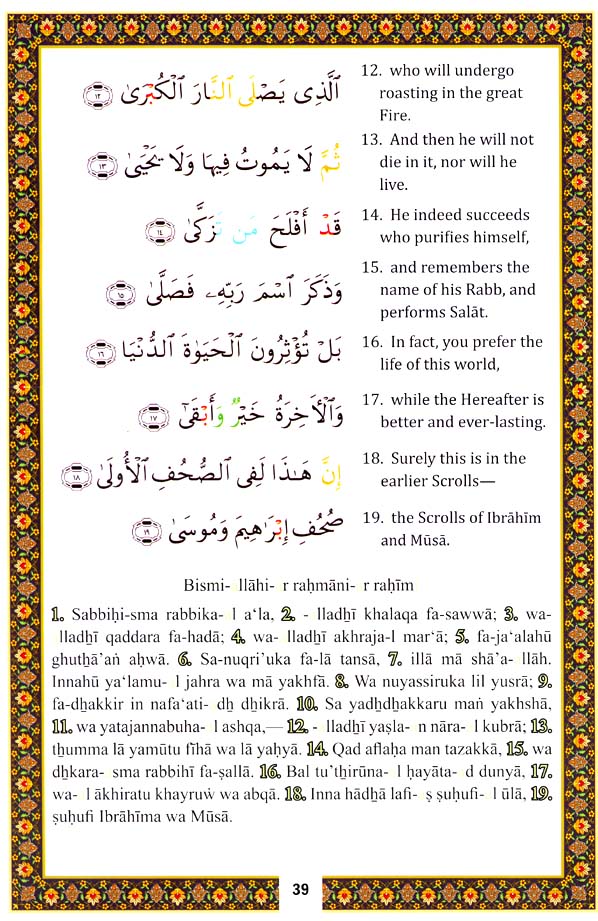 ٱلَّذِى يَصْلَى ٱلنَّارَ ٱلْكُبْرَىٰ ١٢
12. who will undergo
roasting in the great
Fire.
ثُمَّ لَا يَمُوتُ فِيهَا وَلَا يَحْيَىٰ ١٣
13. And then he will not
die in it, nor will he
live.
قَدْ أَفْلَحَ مَن تَزَكَّىٰ ١٤
14. He indeed succeeds
who purifies himself,
وَذَكَرَ ٱسْمَ رَبِّهِۦ فَصَلَّىٰ ١٥
15. and remembers the
name of his Rabb, and
performs Salāt.
بَلْ تُؤْثِرُونَ ٱلْحَيَوٰةَ ٱلدُّنْيَا ١٦
16. In fact, you prefer the
life of this world,
وَٱلْأَخِرَةُ خَيْرٌ وَأَبْقَىٰٓ ١٧
17. while the Hereafter is
better and ever-lasting.
إِنَّ هَٰذَا لَفِى ٱلصُّحُفِ ٱلْأُولَىٰ ١٨
18. Surely this is in the
earlier Scrolls—
صُحُفِ إِبْرَٰهِيمَ وَمُوسَىٰ ١٩
19. the Scrolls of Ibrāhīm
and Mūsā.
Bismi- llāhi- r raḥmāni- r raḥīm
1. Sabbiḥi-sma rabbika- l a‘la, 2. - lladẖī khalaqa fa-sawwā; 3. wa-
lladẖī qaddara fa-hadā; 4. wa- lladẖī akhraja-l mar‘ā; 5. fa-ja‘alahū
ghuthā’aṅ aḥwā. 6. Sa-nuqri’uka fa-lā tansā, 7. illā mā shā’a- llāh.
Innahū ya‘lamu- l jahra wa mā yakhfā. 8. Wa nuyassiruka lil yusrā; 9.
fa-dẖakkir in nafa‘ati- dẖ dẖikrā. 10. Sa yadẖdẖakkaru maṅ yakhshā,
11. wa yatajannabuha- l ashqa,— 12. - lladẖī yaṣla- n nāra- l kubrā; 13.
tẖumma lā yamūtu fīhā wa lā yaḥyā. 14. Qad aflaḥa man tazakkā, 15. wa
dẖkara- sma rabbihī fa-ṣallā. 16. Bal tu’tẖirūna- l ḥayāta- d dunyā, 17.
wa- l ākhiratu khayruẇ wa abqā. 18. Inna hādẖā lafi- ṣ ṣuḥufi- l ūlā, 19.
ṣuḥufi Ibrāhīma wa Mūsā.
39